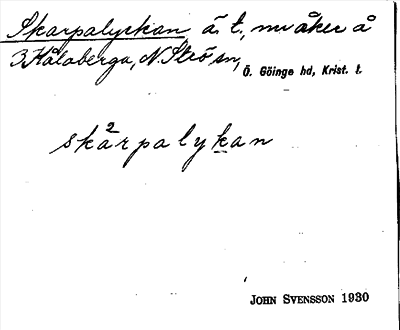 Skarpalyckan, ä. t., nu åker å
3 Kålaberga, N. Strö sn,
Ö. Göinge hd, Krist. l.
ska2rpalykan
JOHN SVENSSON 1930